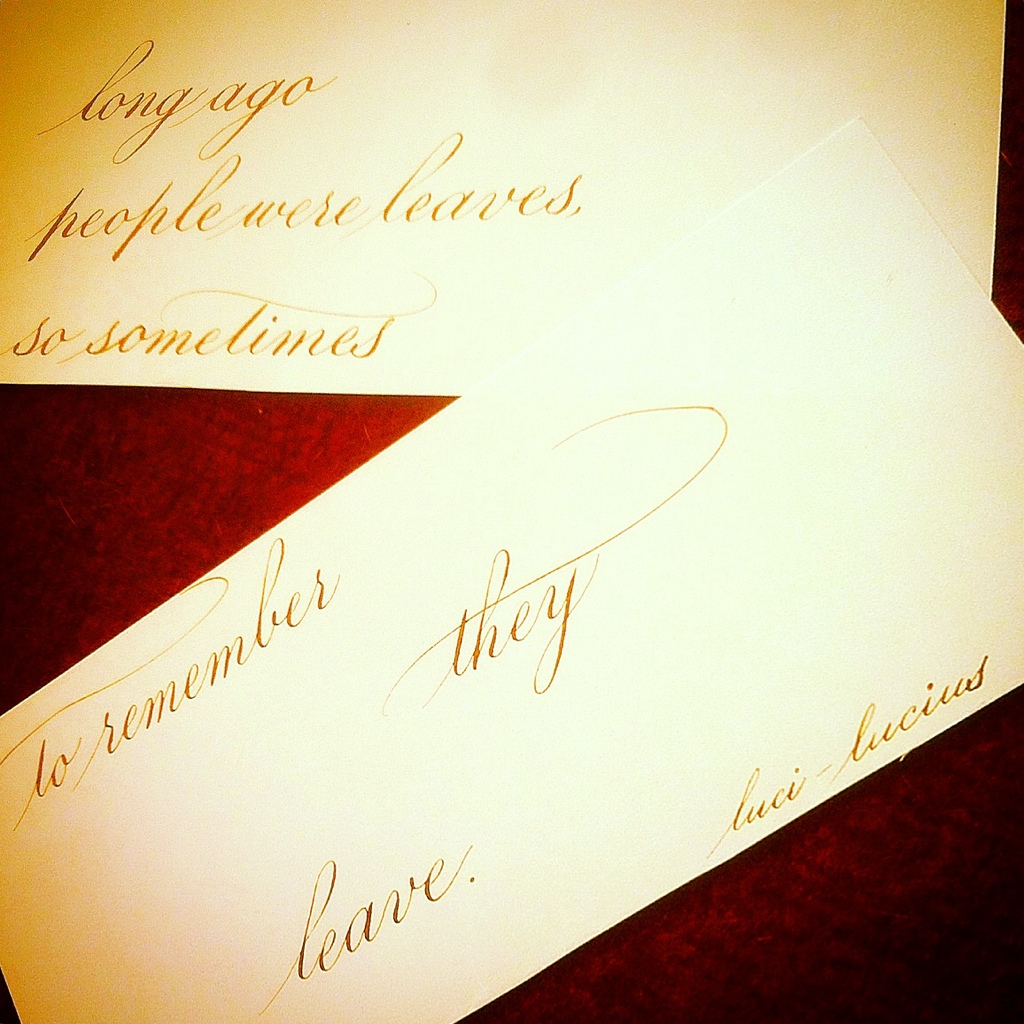 long ago
people were leaves,
so sometimes
to remember
they
leave.
luci-lucius